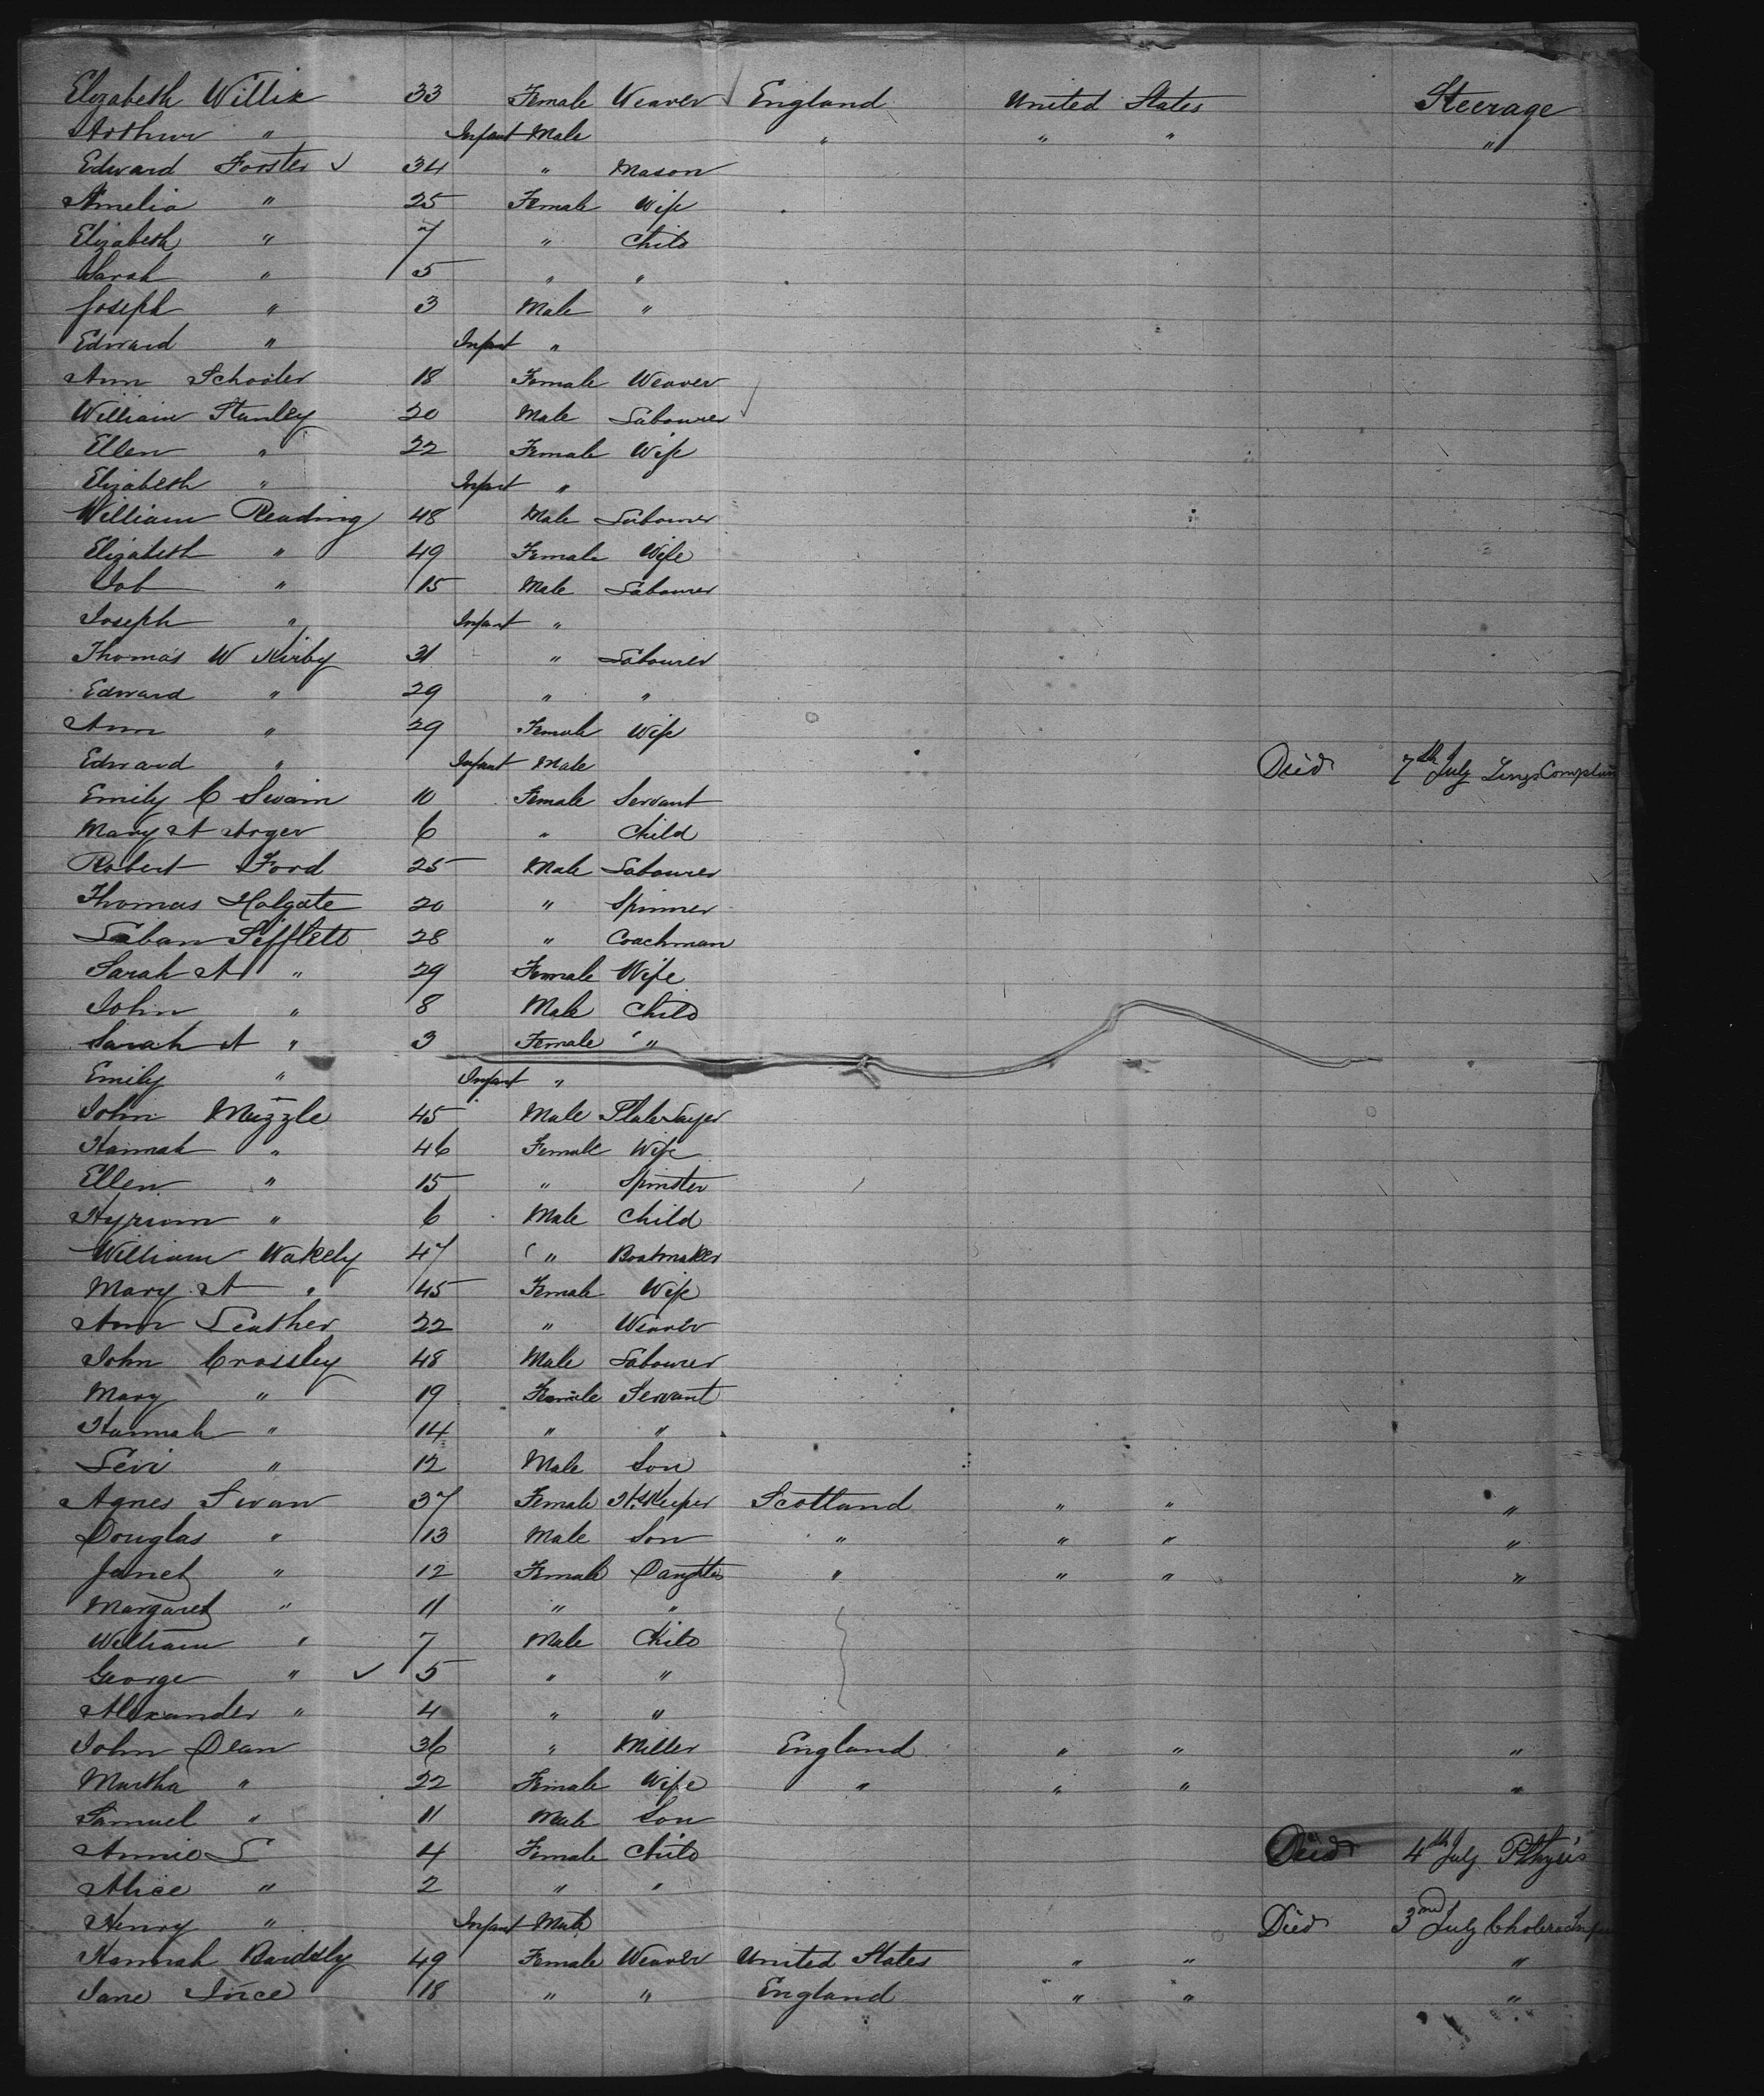 Elizabeth Willix 33 Female Weaver England United States Steerage
Arthur " Infant Male " " " "
Edward Forster 34 " Mason
Amelia " 25 Female Wife
Elizabeth " 7 " Child
Sarah " 5 " "
Joseph " 3 Male "
Edward " Infant "
Ann Schooler 18 Female Weaver
William Stanley 20 Male Labourer
Ellen " 22 Female Wife
Elizabeth " Infant "
William Reading 48 Male Labourer
Elizabeth " 49 Female Wife
Job " 15 Male Labourer
Joseph " Infant "
Thomas W Kirby 31 " Labourer
Edward " 29 " "
Ann " 29 Female Wife
Edward " Infant Male Died 7th July Lungs Complain
Emily C Swain 10 Female Servant
Mary A Arger 6 " Child
Robert Ford 25 Male Labourer
Thomas Holgate 20 " Spinner
Laban Sifflett 28 " Coachman
Sarah A " 29 Female Wife
John " 8 Male Child
Sarah A " 3 Female "
Emily " Infant "
John Muzzle 45 Male Platelayer
Hannah " 46 Female Wife
Ellen " 15 " Spinster
Hyrum " 6 Male Child
William Wakely 47 " Bootmaker
Mary A " 45 Female Wife
Ann Leather 22 " Weaver
John Crossley 48 Male Labourer
Mary " 19 Female Servant
Hannah " 14 " "
Levi " 12 Male Son
Agnes Swan 37 Female H.Keeper Scotland " " "
Douglas " 13 Male Son " " " "
Janet " 12 Female Daughter " " " "
Margaret " 11 " "
William " 7 Male Child
George " 5 " "
Alexander " 4 " "
John Dean 36 " Miller England " " "
Martha " 22 Female Wife " " " "
Samuel " 11 Male Son
Annie L 4 Female Child Died 4th July Pthysis
Alice " 2 " "
Henry " Infant Male Died 3rd July Cholera
Hannah Bardsly 49 Female Weaver United States " " "
Jane Ince 18 " " England " " "